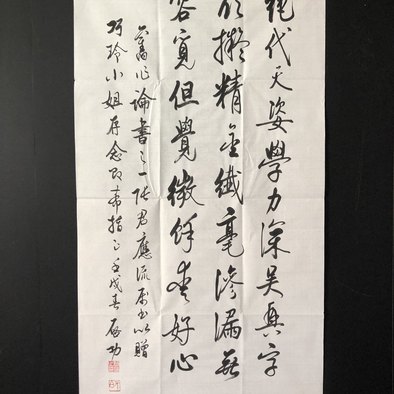 絕代天姿學力深吳興字
欲擬精金纖毫滲漏無
容覓但覺微餘愛好心
舊作論書之一張君應流屬書以贈
巧玲小姐存念即希指正壬戌春啟功